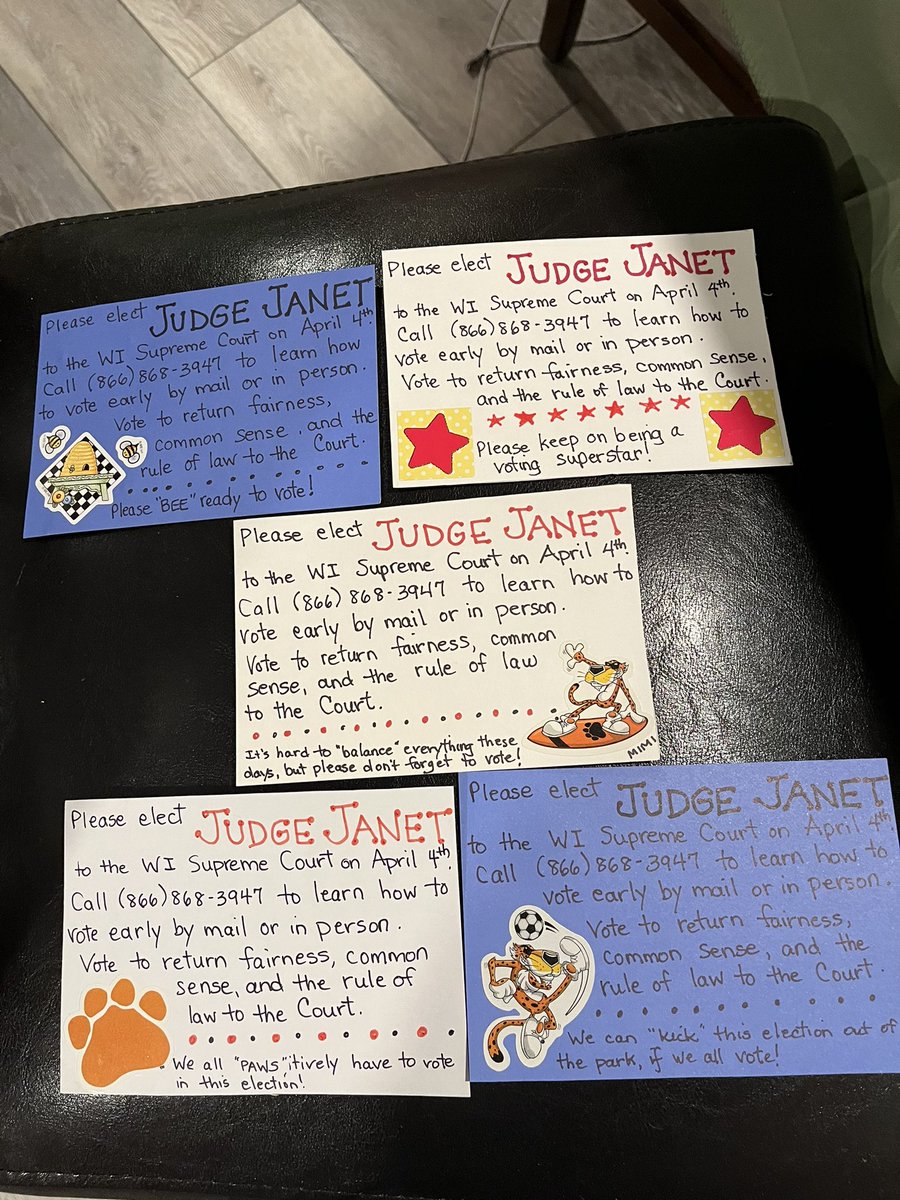 Please elect JUDGE JANET
to the WI Supreme Court on April 4th.
Call (866)868-3947 to learn how
to vote early by mail or in person.
Vote to return fairness,
common sense, and the
rule of law to the Court.
Please "BEE" ready to vote!
Please elect JUDGE JANET
to the WI Supreme Court on April 4th.
Call (866)868-3947 to learn how to
vote early by mail or in person.
Vote to return fairness, common sense,
and the rule of law to the Court.
Please keep on being a
voting superstar!
Please elect JUDGE JANET
to the WI Supreme Court on April 4th.
Call (866)868-3947 to learn how to
vote early by mail or in person.
Vote to return fairness, common
sense, and the rule of law
to the Court.
It's hard to "balance" everything these
days, but please don't forget to vote!
MIMI
Please elect JUDGE JANET
to the WI Supreme Court on April 4th.
Call (866)868-3947 to learn how to
vote early by mail or in person.
Vote to return fairness, common
sense, and the rule of
law to the Court.
We all "PAWS"itively have to vote
in this election!
Please elect JUDGE JANET
to the WI Supreme Court on April 4th.
Call (866)868-3947 to learn how to
vote early by mail or in person.
Vote to return fairness,
common sense, and the
rule of law to the Court.
We can "kick" this election out of
the park, if we all vote!